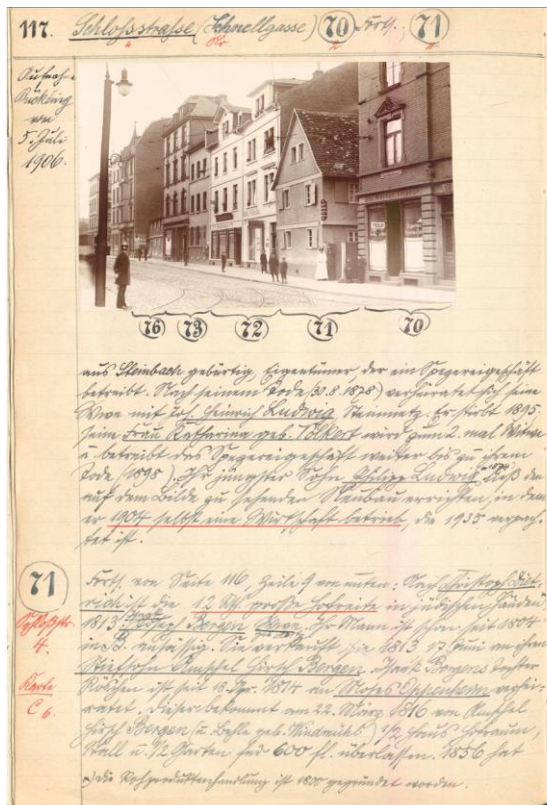 117. Schloßstrasse (Schnellgasse) 70 Forts. 71
Aufnahme
Bückling
vom
5. Juli
1906.
76 73 72 71 70
aus Steinbach gebürtig, Eigentümer der ein Spezereigeschäft
betreibt. Nach seinem Tode (30.8.1878) verheiratet sich seine
Wwe mit Joh. Heinrich Ludwig Steinmetz. Er stirbt 1895.
Seine Frau Katharina geb. Volkert wird zum 2. mal Witwe
u. betreibt das Spezereigeschäft weiter bis zu ihrem
Tode (1898). Ihr jüngster Sohn Philipp Ludwig ließ den
auf dem Bilde zu sehenden Neubau errichten, in dem
er 1904 selbst eine Wirtschaft betrieb, die 1935 verpach-
tet ist.
71
Schloßstr.
4.
Karte
C 6.
Forts. von Seite 116, Zeile 9 von unten: Nach Christoph Diet-
rich ist die 12 große Hofreite in jüdischen Händen
1813 Bergen Ihr Mann ist schon seit 1804
in B. ansässig. Sie verkauft sie 1813 17 Juni an ihren
Stiefsohn Amschel Hirsch Bergen. Bergens Tochter
Röschen ist seit 1814 an Motes Oppenheim verhei-
ratet. Dieser bekommt am 22. März 1816 von Amschel
Hirsch Bergen (u. geb. ) 1/2 Haus Hofraum,
Stall u. 1/2 Garten für 600 fl. überlassen. 1856 hat
die Rohproduktenhandlung ist 1800 gegründet worden.